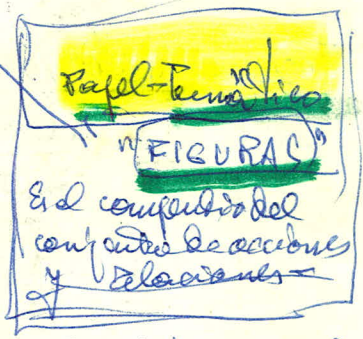 Papel-Temático
"FIGURAS"
Es el compendio del
conjunto de acciones
y relaciones